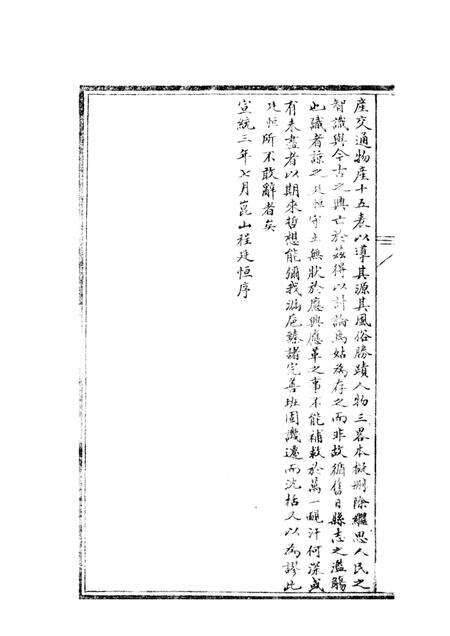 産交通物産十五表以導其源其風俗勝蹟人物三畧本擬刪除繼思人民之
智識與今古之興亡於茲得以討論焉姑為存之而非故循舊日縣志之濫觴
也識者諒之廷恒守土無狀於應興應革之事不能補救於萬一靦汗何深或
有未盡者以期來哲想能彌我漏巵臻諸完善班固譏遷而沈括又以為謬此
廷恒所不敢辭者矣
宣統三年七月崑山程廷恒序